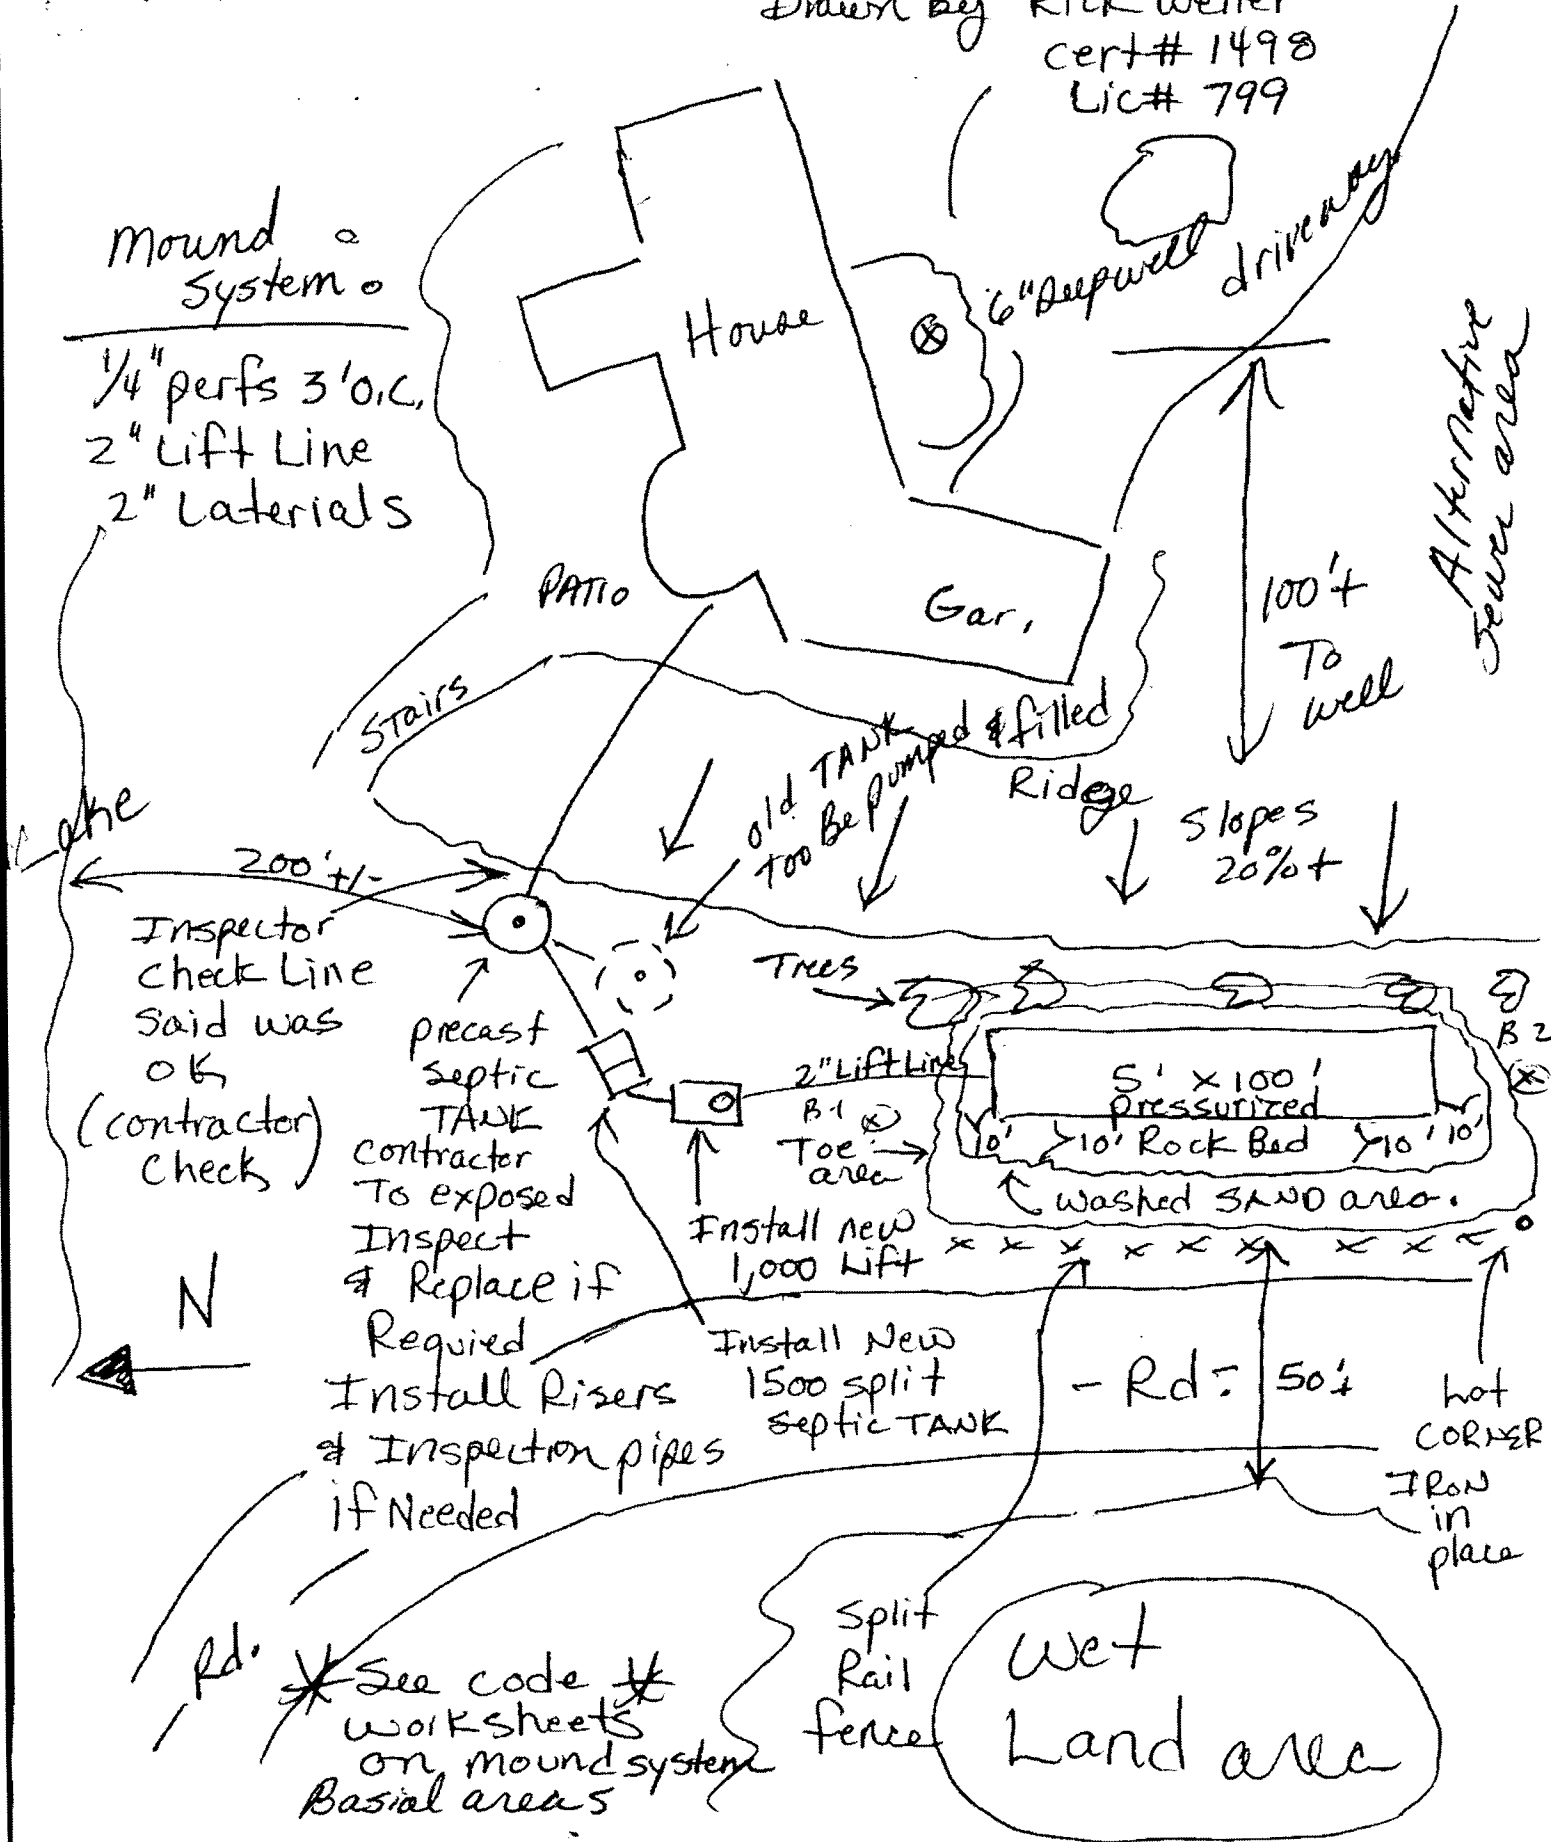 Drawn by Rick Weller
cert# 1498
Lic# 799
Mound
System
1/4" perfs 3' O.C.
2" Lift Line
2" Laterials
House
6" Deepwell
driveway
Alternative
Sewer area
100'+
To
well
PATIO
Gar.
Stairs
old TANK
too Be pumped & filled
Ridge
Slopes
20%+
Lake
200'+/-
Inspector
Check Line
Said was
OK
(contractor)
Check
precast
Septic
TANK
contractor
To exposed
Inspect
& Replace if
Requied
Install Risers
& Inspection pipes
if Needed
Trees
B2
2" Lift Line
B-1
Toe
area
5' x 100'
pressurized
10' 10' Rock Bed 10' 10'
washed SAND area.
Install new
1,000 Lift
Install New
1500 split
Septic TANK
N
- Rd -
50'±
Lot
CORNER
IRON
in
place
Rd.
See code
worksheets
on mound system
Basial areas
Split
Rail
fence
Wet
Land area